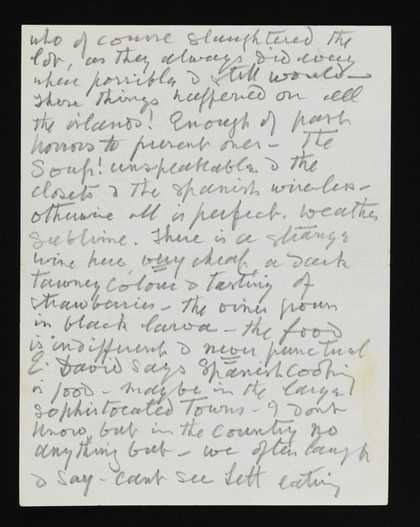 who of course slaughtered the
lot, as they always did every
where possible & still would –
these things happened on all
the islands! Enough of past
horrors to present ones – The
Soup! unspeakable & the
closets & the Spanish wireless –
otherwise all is perfect. weather
sublime. There is a strange
wine here, very cheap, a dark
tawney colour & tasting of
strawberries – the vines grown
in black larva – the food
is indifferent & never punctual
E. David says Spanish cooking
is food – maybe in the large
sophistocated Towns – I dont
know, but in the country no
anything but – we often laugh
& say – cant see Lett eating